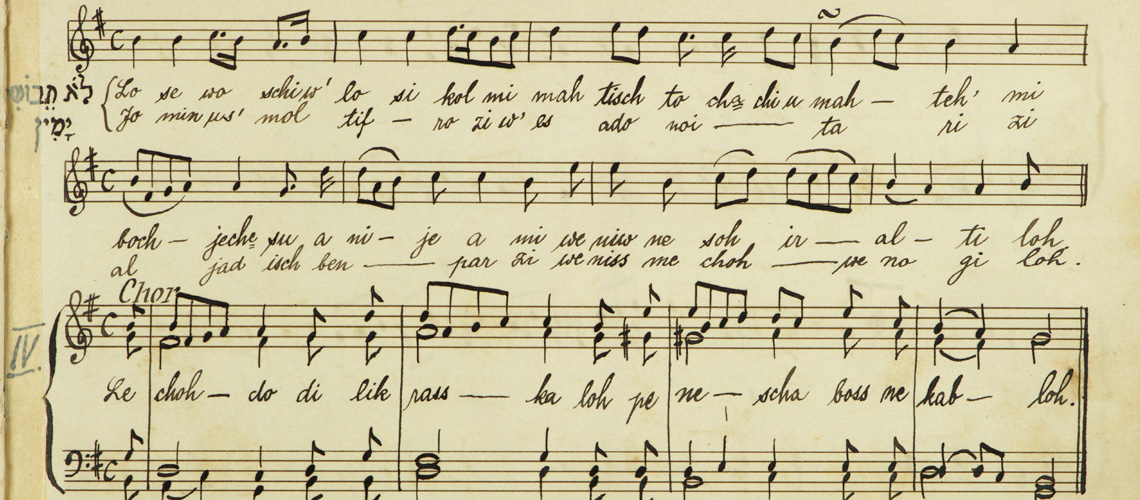 לֹא תֵבוֹשִׁי
Lo se wo schiw' lo si kol mi mah tisch to chi u mah — teh' mi
יָמִין
Jo min us' mol tif — ro zi w' es ado noi — ta ri zi
boch — jeche su a ni — je a mi we niw ne soh ir — al — ti loh
al jad isch ben — par zi we niss me choh — we no gi loh.
Chor
IV.
Le choh — do di lik rass — ka loh pe ne — scha boss ne kab — loh.